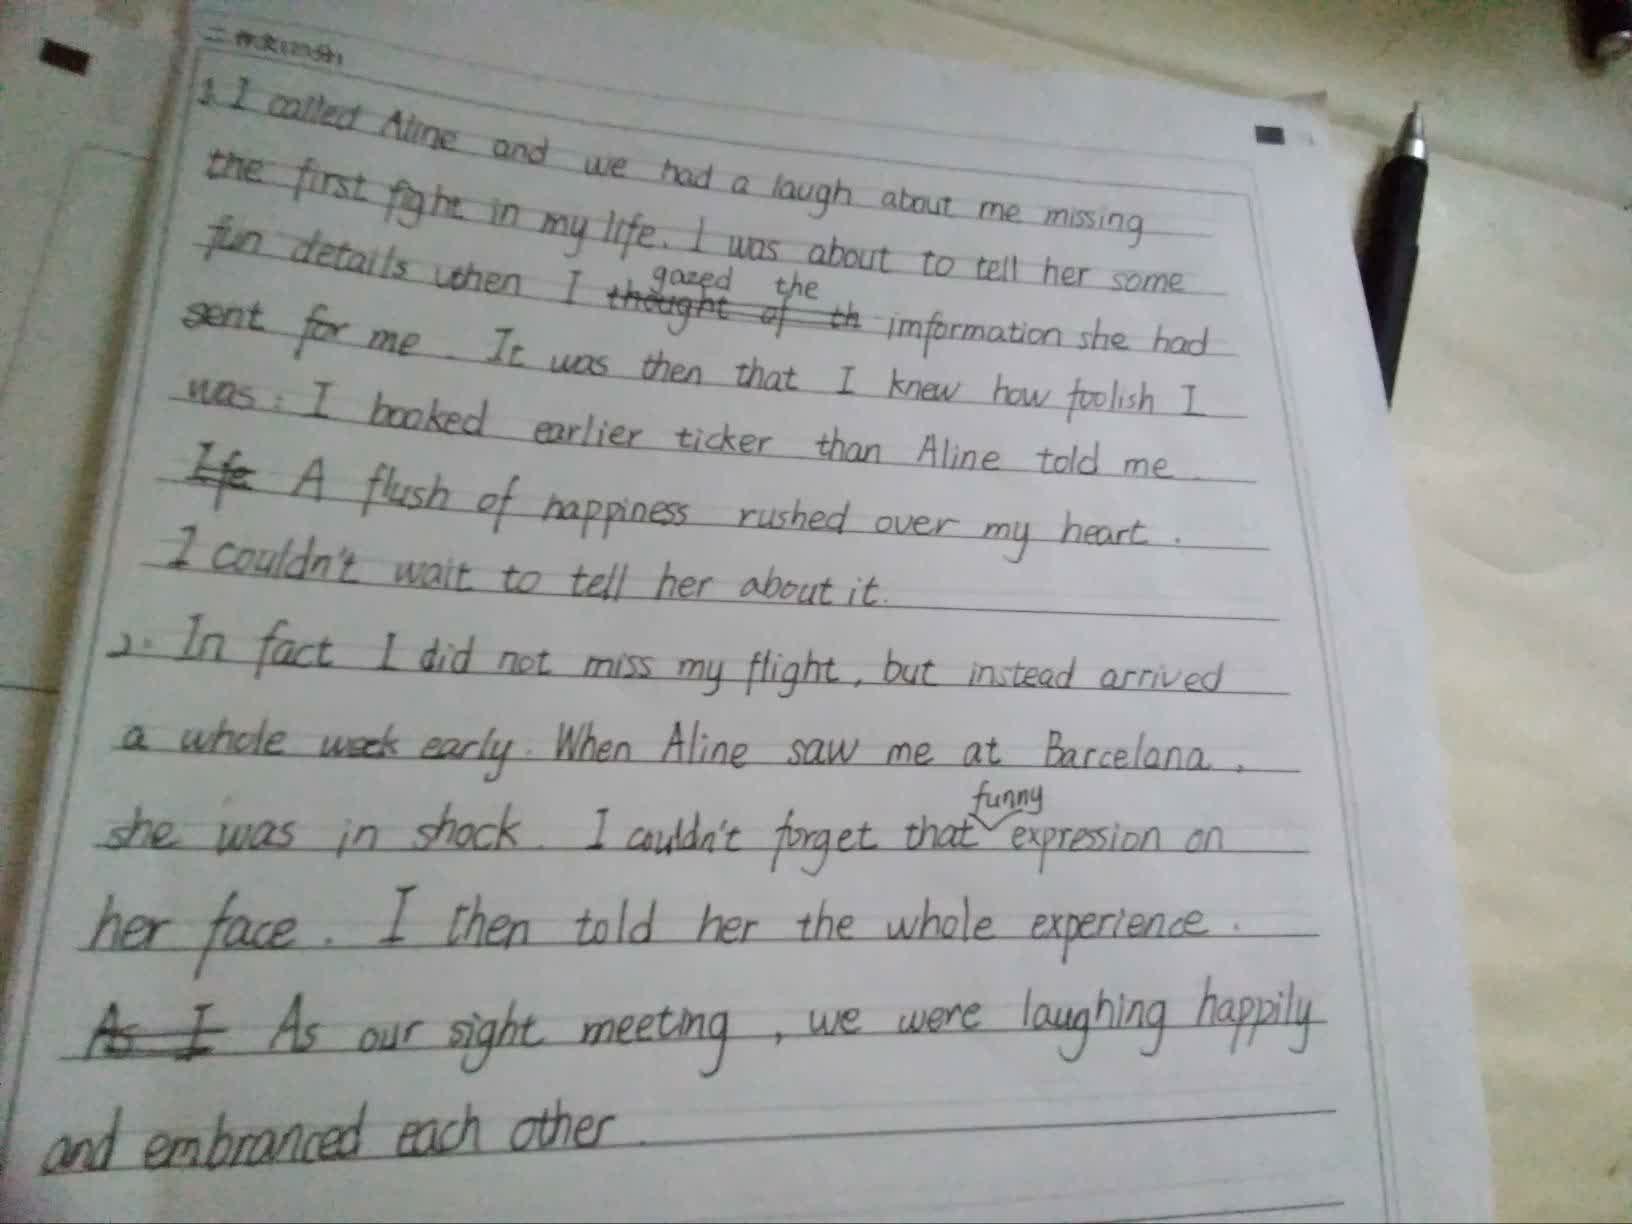 二 作文(25分)
1. I called Aline and we had a laugh about me missing
the first fight in my life. I was about to tell her some
fun details when I gazed the
thought of th imformation she had
sent for me. It was then that I knew how foolish I
was. I booked earlier ticker than Aline told me.
Ife A flush of happiness rushed over my heart.
I couldn't wait to tell her about it.
2. In fact I did not miss my flight, but instead arrived
a whole week early. When Aline saw me at Barcelana,
she was in shock. I couldn't forget that funny expression on
her face. I then told her the whole experience.
As I As our sight meeting, we were laughing happily
and embranced each other.